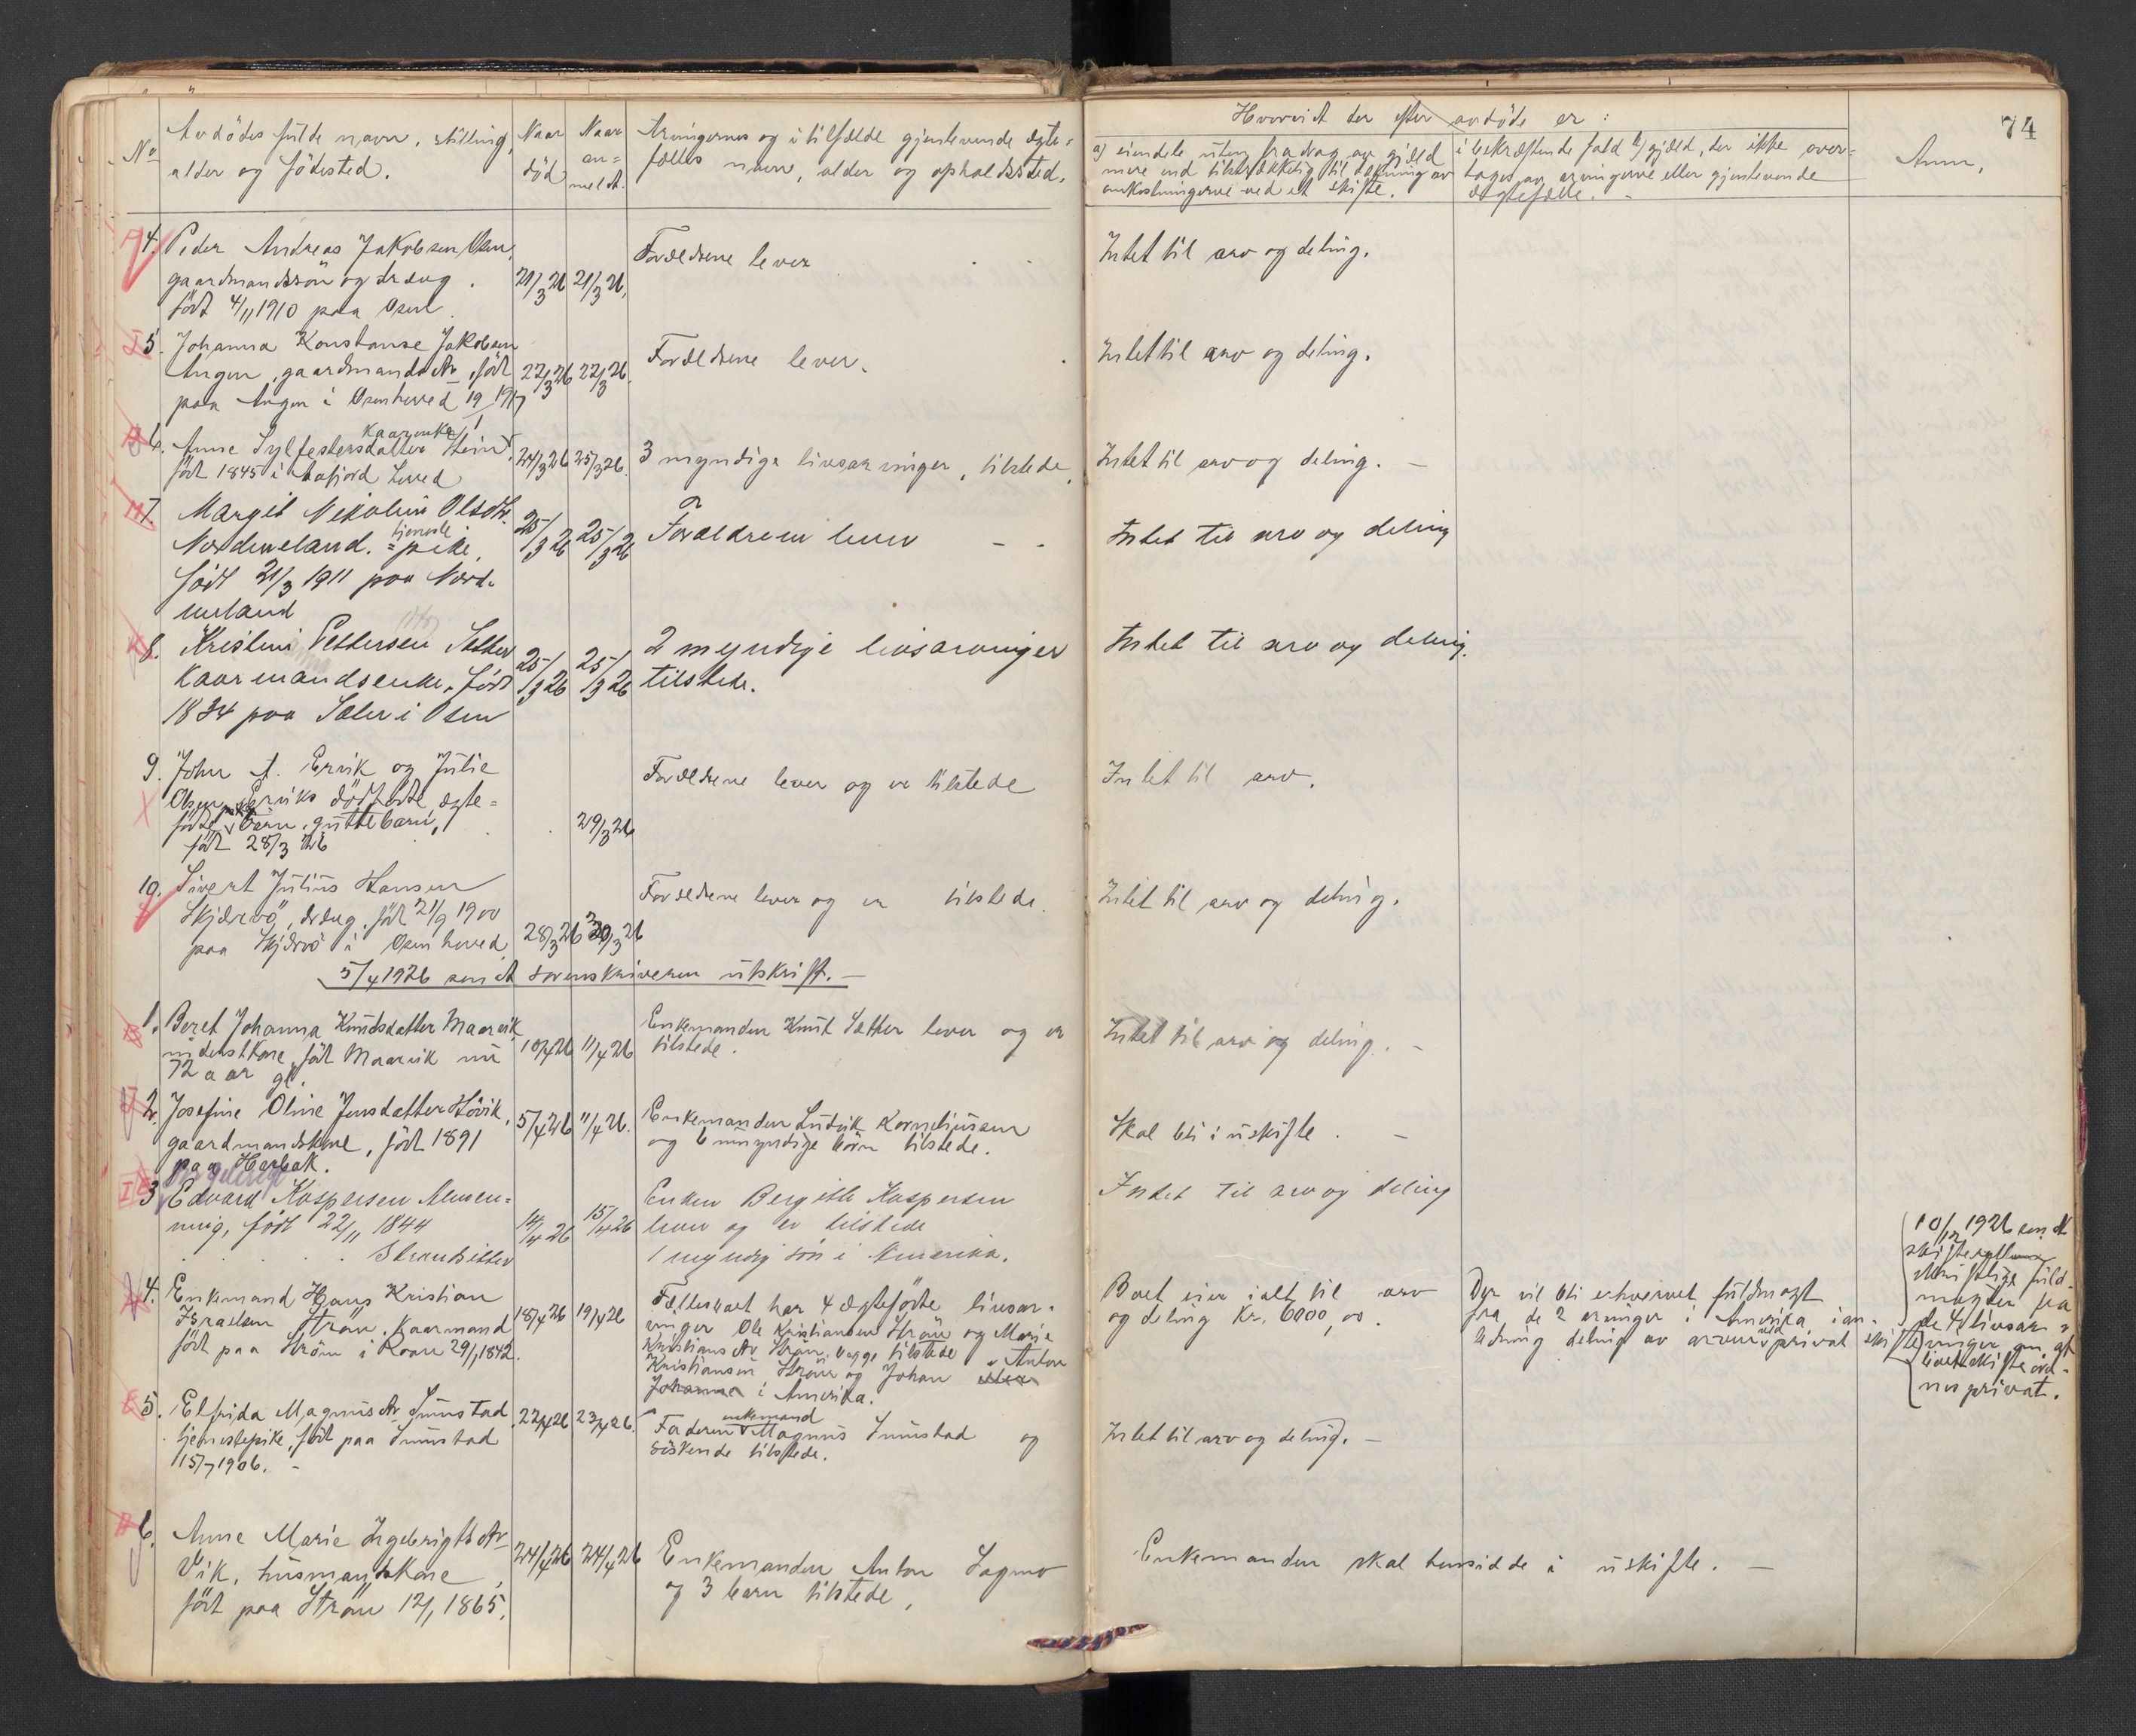 74
No
Avdödes fulde navn, stilling,
alder og födested.
Naar
död
Naar
an=
meldt.
Arvingernes og i tilfælde gjenlevende ægte=
fælles navn, alder og opholdssted.
Hvorvidt der efter avdöde er:
a) eiendele uten fradrag av gjæld
mere end tilstrækkelig til dækning av
omkostningerne ved et skifte.
i bekræftende fald b) gjæld, der ikke over=
tages av arvingerne eller gjenlevende
ægtefælle. -
Anm.
4. Peder Andreas Jakobsen Osen,
gaardmandssön og dræng.
födt 4/11 1910 paa Osen.
21/3 26
21/3 26.
Forældrene lever
Intet til arv og deling.
5. Johanna Konstanse Jakobsen
Angen, gaardmandsdtr, födt
paa Angen i Osen herred 19/1 1917
22/3 26
22/3 26.
Forældrene lever.
Intet til arv og deling.
6. Anne Sylfestersdatter Stein
kaarenke
födt 1845 i herred
24/3 26
25/3 26.
3 myndige livsarvinger, tilstede.
Intet til arv og deling. -
7. Margit Nikoline Olsdtr.
Nordmeland. tjeneste
=pike.
födt 21/3 1911 paa Nord-
meland
25/3 26
25/3 26
Forældrene lever - -
Intet til arv og deling
8. Kristine Pettersen Sætter
Kaarmandsenke, födt
1834 paa Sæter i Osen
25/3 26
25/3 26
2 myndige livsarvinger
tilstede.
Intet til arv og deling.
9. John A. Ervik og Julie
Olsen Erviks dödfödte ægte=
födte barn, guttebarn,
födt 28/3 26
29/3 26
Forældrene lever og er tilstede
Intet til arv.
10. Sivert Julius Hansen
Skjærvö, dræng, födt 21/9 1900
paa Skjærvö i Osen herred
28/3 26
30/3 26
Forældrene lever og er tilstede.
Intet til arv og deling.
5/4 1926 sendt sorenskriveren utskrift. -
1. Beret Johanna Knudsdatter Maarvik
inderstkone, födt Maarvik nu
72 aar gl.
10/4 26
11/4 26
Enkemanden Knut Sætter lever og er
tilstede.
Intet til arv og deling. -
2. Josefine Oline Jensdatter Hövik,
gaardmandskone, födt 1891
paa Harbak.
5/4 26
11/4 26.
Enkemanden Ludvik Korneliussen
og 6 umyndige börn tilstede.
Skal bli i uskifte. -
3 Edvard Kaspersen Almen=
ning, födt 22/11 1844
Strandsitter
14/4 26
15/4 26
Enken Bergitte Kaspersen
lever og er tilstede
1 myndig sön i Amerika.
Intet til arv og deling
4. Enkemand Hans Kristian
Israelsen Ström, kaarmand
födt paa Ström i Roan 29/1 1842.
18/4 26
19/4 26
Fællesboet har 4 ægtefödte livsar-
vinger Ole Kristiansen Ström og Marie
Kristiansdtr Ström, begge tilstede
Kristiansen Ström og Johan Anton
Johanna i Amerika.
Boet eier ialt til arv
og deling Kr. 6000,00.
Der vil bli erhvervet fuldmagt
fra de 2 arvinger i Amerika i an-
ledning deling av arven ved privat skifte
10/12 1926 sendt
skifteretten
skriftlige fuld-
magter fra
de 4 livsar-
vinger om at
boet skifte ord-
nes privat.
5. Elfrida Magnusdtr Sumstad
tjenestepike, födt paa Sumstad
15/7 1906. -
22/4 26
23/4 26.
Faderen enkemand Magnus Sumstad og
söskende tilstede.
Intet til arv og deling. -
6. Anne Marie Ingebrigtsdtr
Vik, husmandskone,
födt paa Ström 12/1 1865.
24/4 26
24/4 26
Enkemanden Anton Sagmo
og 3 barn tilstede,
Enkemanden skal hensidde i uskifte. -